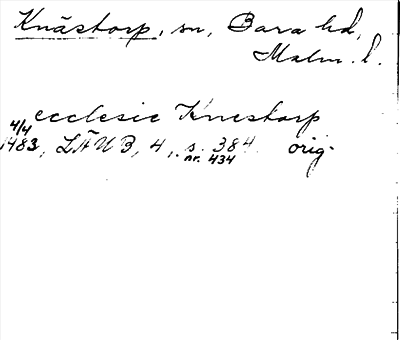 Knästorp, sn, Bara hd,
Malm. l.
ecclesie Knestorp
4/4
1483, LÄUB, 4, s. 384 orig.
nr. 434